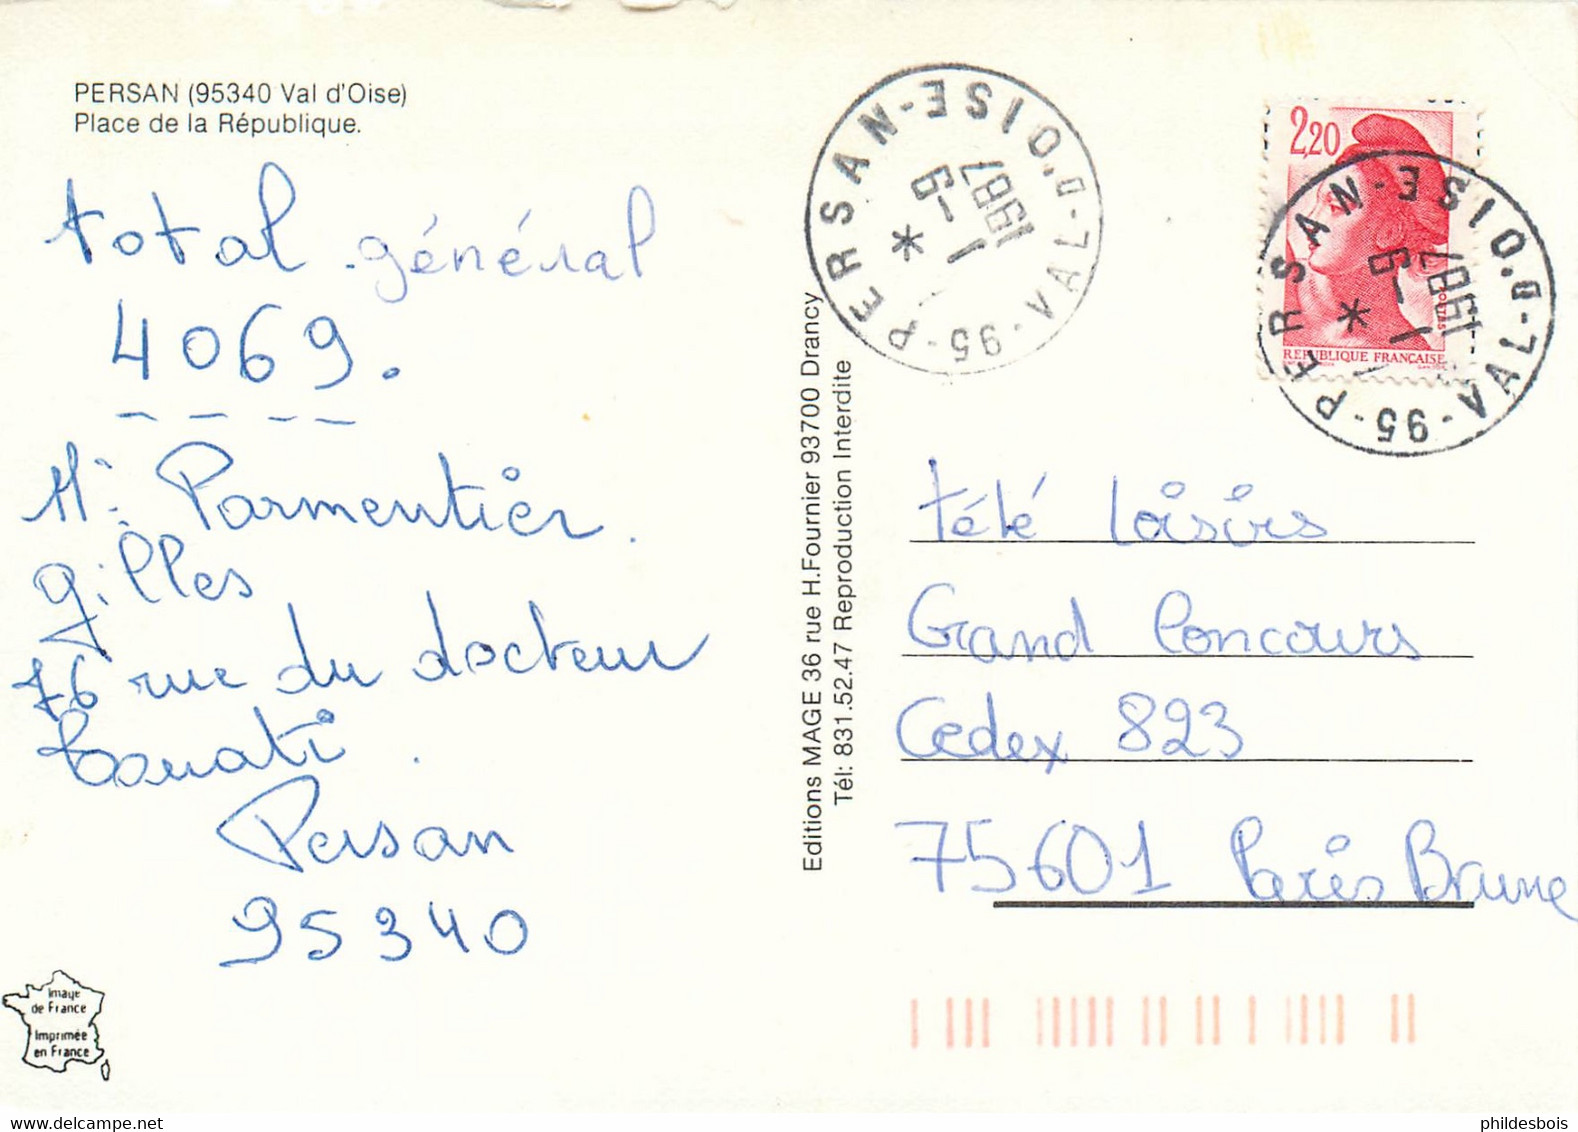 PERSAN (95340 Val d'Oise)
Place de la République.
total général
4069.
Mr Parmentier
gilles
76 rue du docteur
Persan
95340
Image
de France
Imprimée
en France
Editions MAGE 36 rue H.Fournier 93700 Drancy
Tél: 831.52.47 Reproduction Interdite
95-PERSAN-VAL-D'OISE
1-9
1987
2,20
RÉPUBLIQUE FRANÇAISE
95-PERSAN-VAL-D'OISE
1-9
1987
tété loisirs
Grand Concours
Cedex 823
75601 Paris Brune
philedesbois